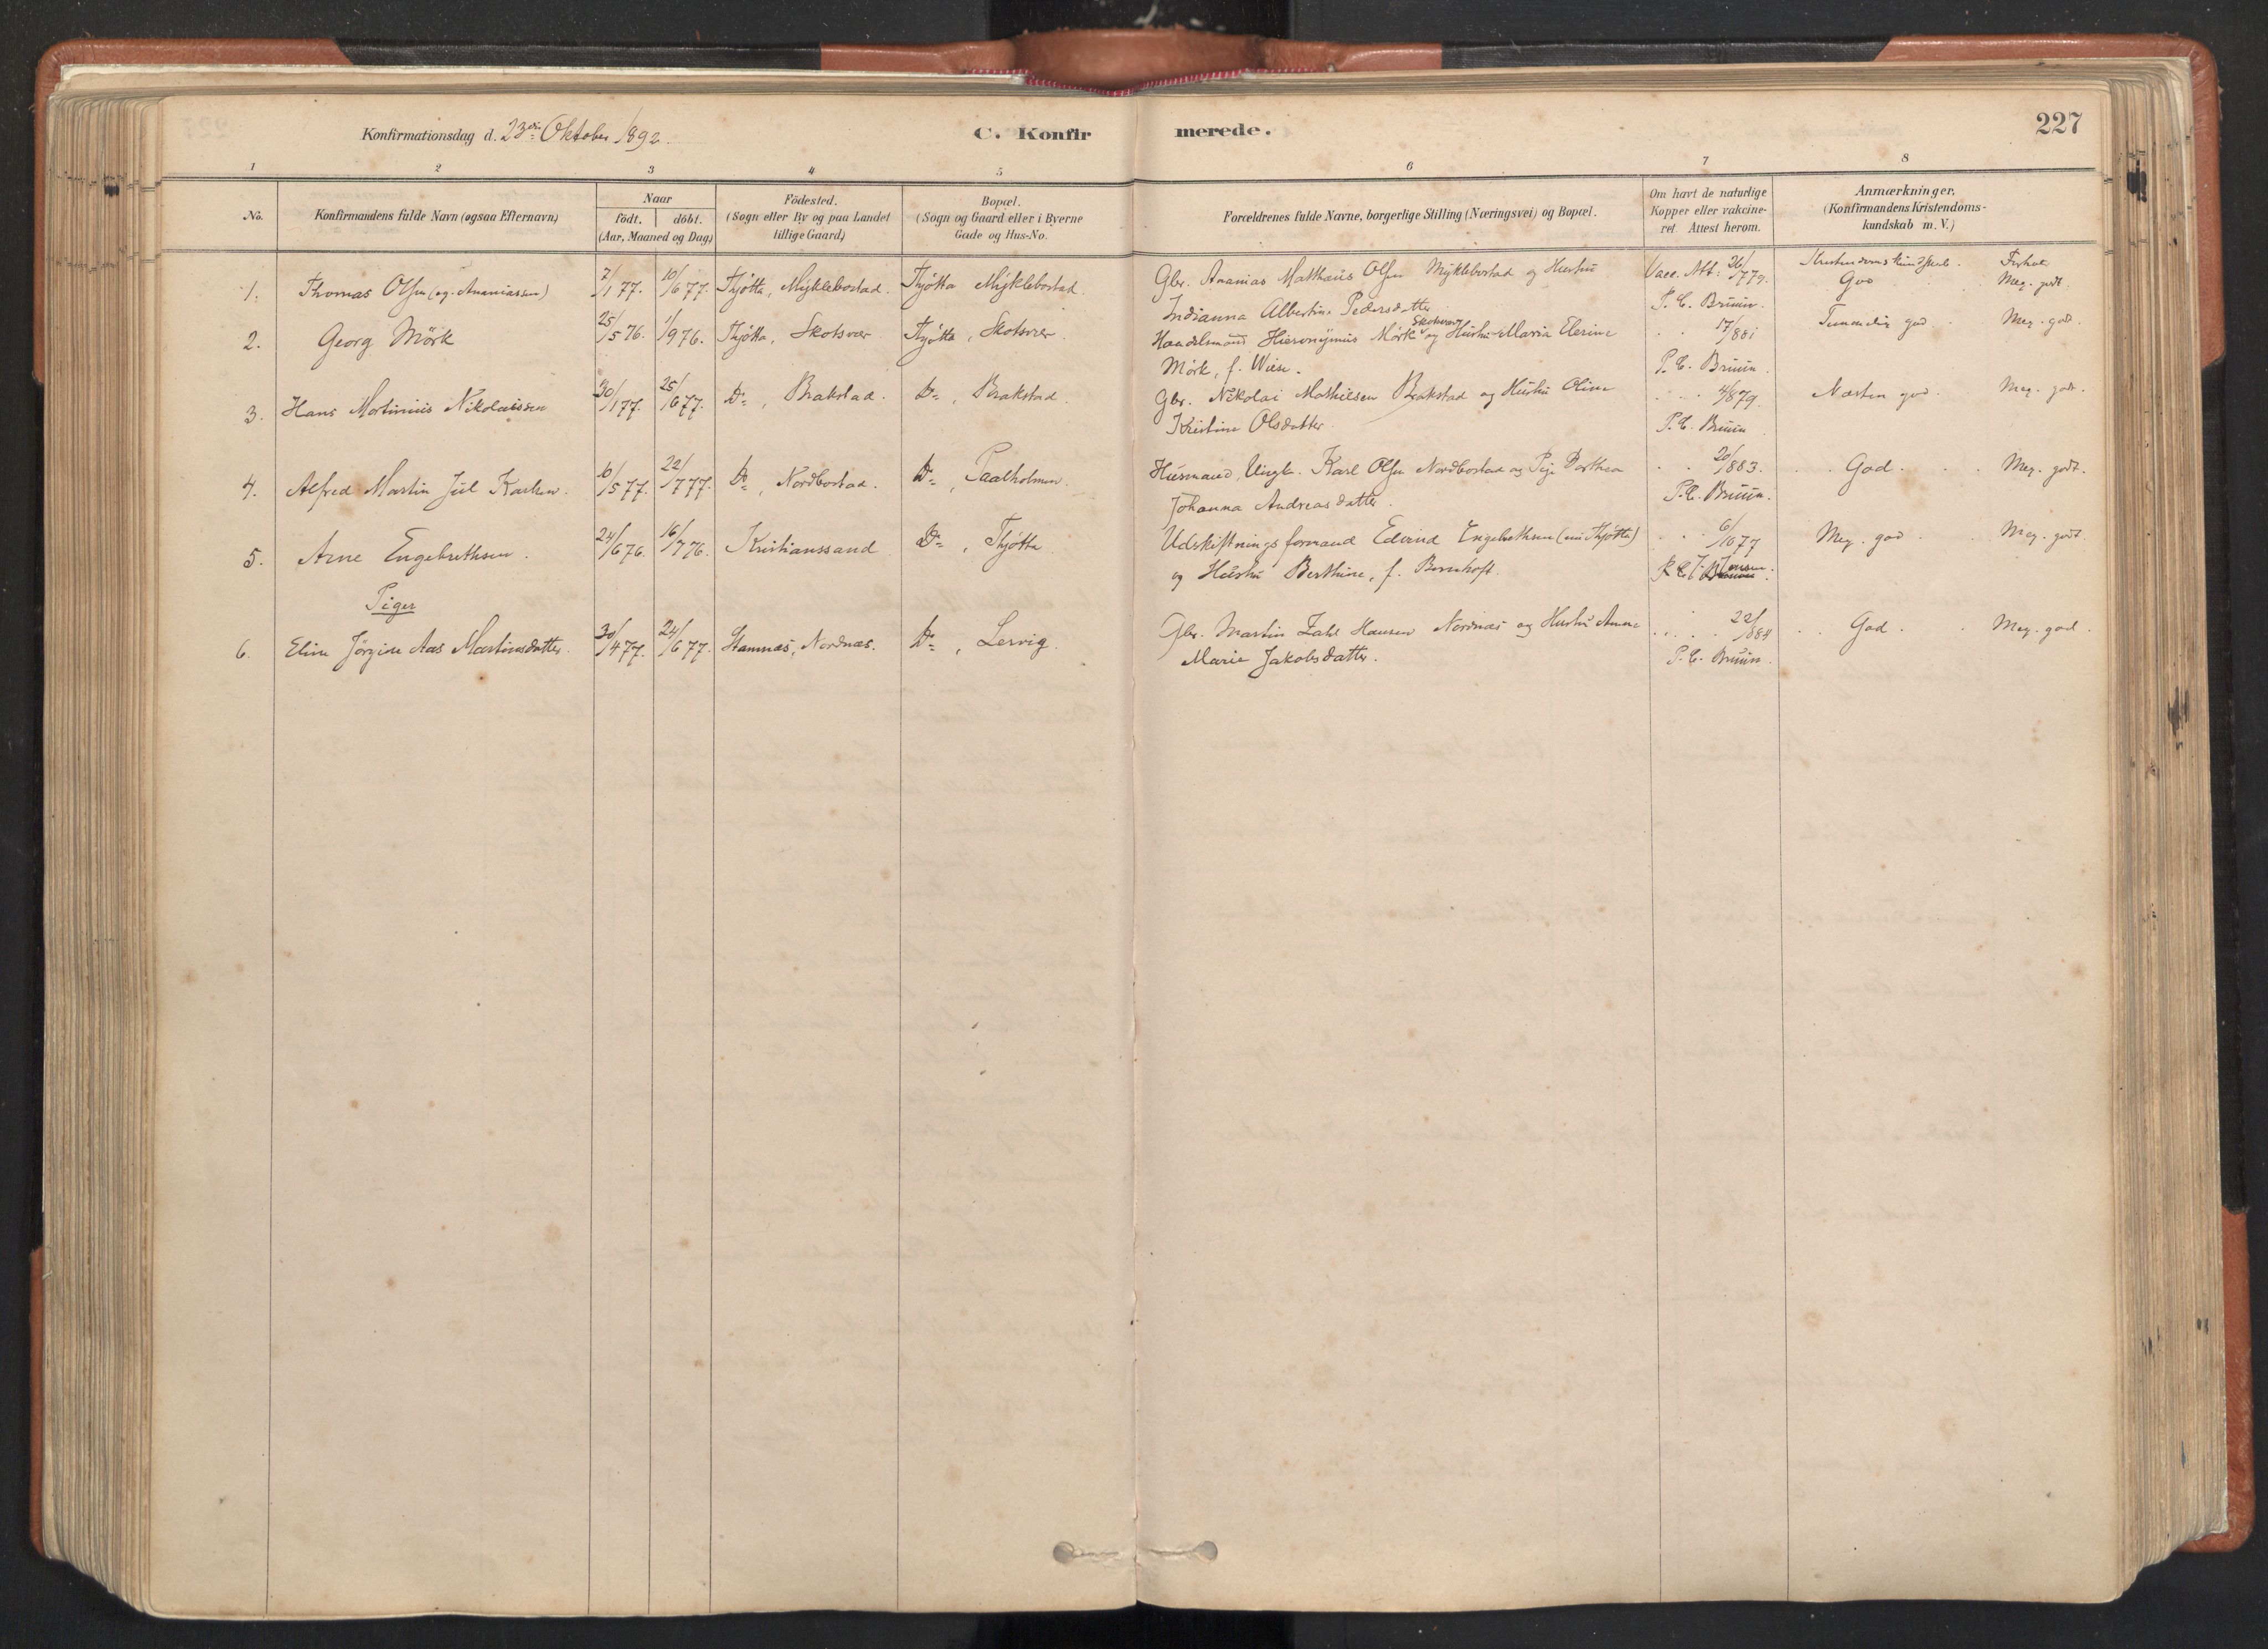 Konfirmationsdag d. 23de Oktober 1892. C. Konfirmerede. 227
1 2 3 4 5 6 7 8
No. Konfirmandens fulde Navn (ogsaa Efternavn) Naar födt. döbt. (Aar, Maaned og Dag) Födested. (Sogn eller By og paa Landet tillige Gaard) Bopæl. (Sogn og Gaard eller i Byerne Gade og Hus-No. Forældrenes fulde Navne, borgerlige Stilling (Næringsvei) og Bopæl. Om havt de naturlige Kopper eller vakcineret. Attest herom. Anmærkninger. (Konfirmandens Kristendomskundskab m. V.)
1. Thomas Olsen (eg. Ananiassen) 7/1 77. 10/6 77. Thjötta, Myklebostad. Thjötta Myklebostad. Gbr. Ananias Matthæus Olsen Myklebostad og Hustru Vacc. Att: 26/7 79. Kristendomskundskab. Forhold
Indianna Albertine Pedersdatter P. C. Bruun. God Meg. godt.
2. Georg Mörk 25/5 76. 1/9 76. Thjötta, Skotsvær Thjötta, Skotsvær. Handelsmand Hieronymus Mörk Skotsvær og Hustru Maria Elerine 17/8 81 Temmelig god. Meg. god.
Mörk, f. Wiese. P. C. Bruun.
3. Hans Martinius Nikolaissen 30/1 77. 25/6 77. Do, Brakstad. Do, Brakstad. Gbr. Nikolai Mathiesen Brakstad og Hustru Oline 4/8 79. Næsten god. Meg. godt.
Kristine Olsdatter. P. C. Bruun
4. Alfred Martin Jul Karlsen. 10/5 77. 22/7 77. Do, Nordbostad. Do, Paalholmen. Husmand, Ungk. Karl Olsen Nordbostad og Pige Dorthea 20/8 83. God. Meg. godt.
Johanna Andreasdatter. P. C. Bruun.
5. Arne Engebrethsen. 24/6 76. 16/7 76. Kristianssand Do, Thjötta Udskiftningsformand Edvind Engebrethsen (nu Thjötta) 6/10 77 Meg. god. Meg. godt
og Hustru Berthine, f. Bernhoft.
Piger
6. Eline Jörgine Aas Martinsdatter. 30/4 77. 24/6 77. Stamnæs, Nordnæs. Do, Lervig. Gbr. Martin Zahl Hansen Nordnæs og Hustru Anne 22/8 84 God. Meg. god.
Marie Jakobsdatter. P. C. Bruun.